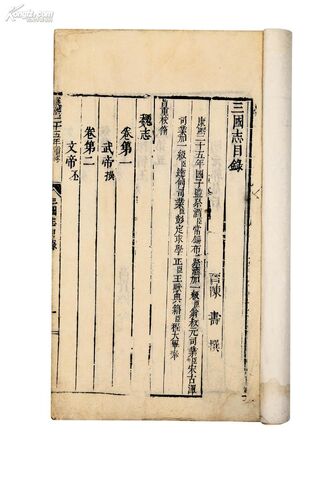 三國志目錄
晉陳壽撰
康熙二十五年國子監祭酒臣常錫布祭酒加一級臣翁叔元司業臣宋古渾
司業加一級臣達鼐司業臣彭定求學正臣王默典籍臣程大畢奉
旨重校脩
魏志
卷第一
武帝操
卷第二
文帝丕
康熙二十五年
三國志目錄